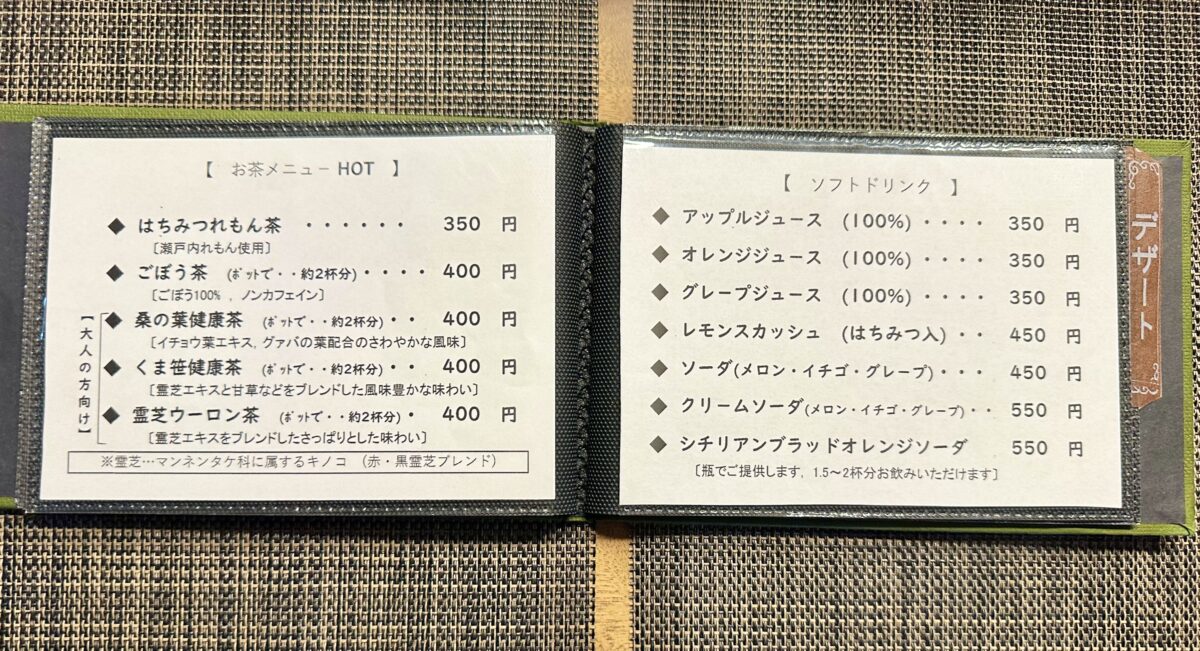 【 お茶メニュー HOT 】
◆ はちみつれもん茶 ・・・・・・ 350 円
〔瀬戸内れもん使用〕
◆ ごぼう茶 (ﾎﾟｯﾄで・・約2杯分)・・・・ 400 円
〔ごぼう100% , ノンカフェイン〕
【大人の方向け】
◆ 桑の葉健康茶 (ﾎﾟｯﾄで・・約2杯分)・・ 400 円
〔イチョウ葉エキス, グァバの葉配合のさわやかな風味〕
◆ くま笹健康茶 (ﾎﾟｯﾄで・・約2杯分)・・ 400 円
〔霊芝エキスと甘草などをブレンドした風味豊かな味わい〕
◆ 霊芝ウーロン茶 (ﾎﾟｯﾄで・・約2杯分)・ 400 円
〔霊芝エキスをブレンドしたさっぱりとした味わい〕
※霊芝…マンネンタケ科に属するキノコ (赤・黒霊芝ブレンド)
【 ソフトドリンク 】
◆ アップルジュース (100%)・・・・ 350 円
◆ オレンジジュース (100%)・・・・ 350 円
◆ グレープジュース (100%)・・・・ 350 円
◆ レモンスカッシュ (はちみつ入)・・ 450 円
◆ ソーダ(メロン・イチゴ・グレープ)・・・ 450 円
◆ クリームソーダ(メロン・イチゴ・グレープ)・・ 550 円
◆ シチリアンブラッドオレンジソーダ 550 円
〔瓶でご提供します, 1.5～2杯分お飲みいただけます〕
デザート